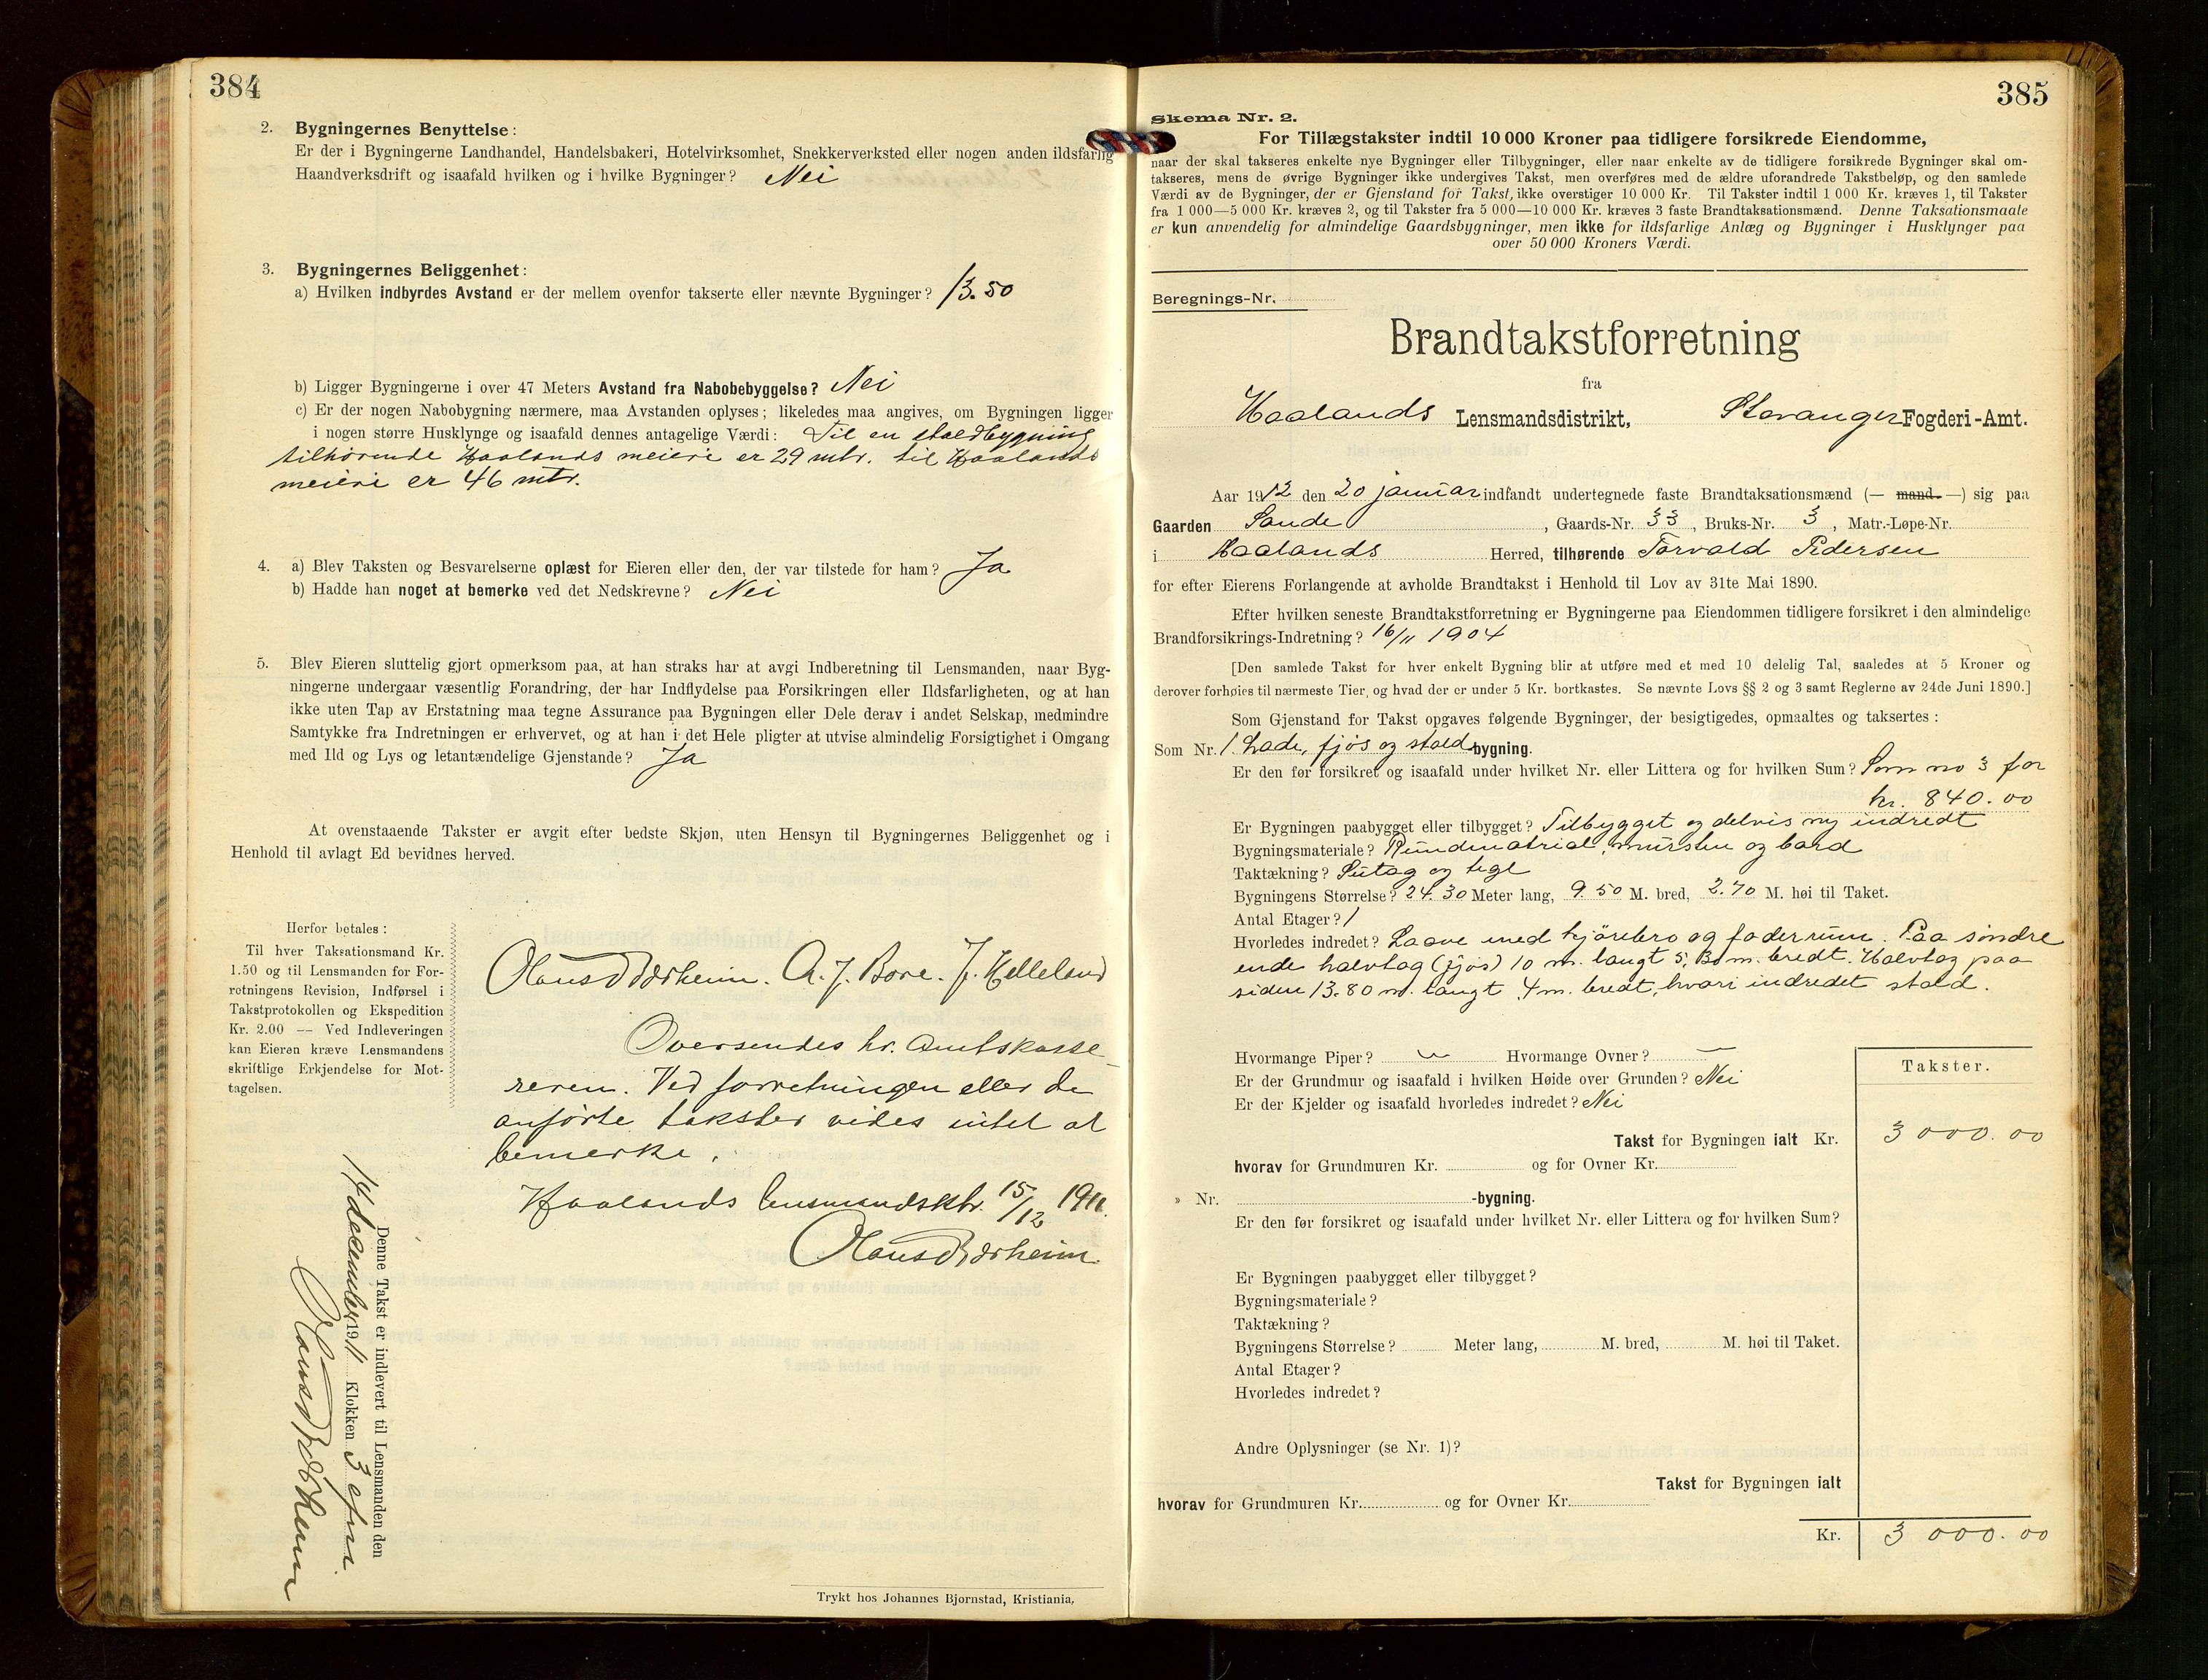 384
2. Bygningernes Benyttelse:
Er der i Bygningerne Landhandel, Handelsbakeri, Hotelvirksomhet, Snekkerverksted eller nogen anden ildsfarlig
Haandverksdrift og isaafald hvilken og i hvilke Bygninger? Nei
3. Bygningernes Beliggenhet:
a) Hvilken indbyrdes Avstand er der mellem ovenfor takserte eller nævnte Bygninger? 13.50
b) Ligger Bygningerne i over 47 Meters Avstand fra Nabobebyggelse? Nei
c) Er der nogen Nabobygning nærmere, maa Avstanden oplyses; likeledes maa angives, om Bygningen ligger
i nogen større Husklynge og isaafald dennes antagelige Værdi: Til en staldbygning
tilhørende Haalands meieri er 29 mtr. til Haalands
meieri er 46 mtr.
4. a) Blev Taksten og Besvarelserne oplæst for Eieren eller den, der var tilstede for ham? Ja
b) Hadde han noget at bemerke ved det Nedskrevne? Nei
5. Blev Eieren sluttelig gjort opmerksom paa, at han straks har at avgi Indberetning til Lensmanden, naar Byg-
ningerne undergaar væsentlig Forandring, der har Indflydelse paa Forsikringen eller Ildsfarligheten, og at han
ikke uten Tap av Erstatning maa tegne Assurance paa Bygningen eller Dele derav i andet Selskap, medmindre
Samtykke fra Indretningen er erhvervet, og at han i det Hele pligter at utvise almindelig Forsigtighet i Omgang
med Ild og Lys og letantændelige Gjenstande? Ja
At ovenstaaende Takster er avgit efter bedste Skjøn, uten Hensyn til Bygningernes Beliggenhet og i
Henhold til avlagt Ed bevidnes herved.
Herfor betales:
Til hver Taksationsmand Kr.
1.50 og til Lensmanden for For-
retningens Revision, Indførsel i
Takstprotokollen og Ekspedition
Kr. 2.00 — Ved Indleveringen
kan Eieren kræve Lensmandens
skriftlige Erkjendelse for Mot-
tagelsen.
A. J. Bore. J. Helleland
Oversendes hr. Amtskasse-
reren. Ved forretningen eller de
anførte takster vides intet at
bemerke.
Haalands lensmandsktr. 15/12 1911.
Denne Takst er indlevert til Lensmanden den
14 december 1911 Klokken 3 efm.
Trykt hos Johannes Bjørnstad, Kristiania.
385
Skema Nr. 2.
For Tillægstakster indtil 10 000 Kroner paa tidligere forsikrede Eiendomme,
naar der skal takseres enkelte nye Bygninger eller Tilbygninger, eller naar enkelte av de tidligere forsikrede Bygninger skal om-
takseres, mens de øvrige Bygninger ikke undergives Takst, men overføres med de ældre uforandrede Takstbeløp, og den samlede
Værdi av de Bygninger, der er Gjenstand for Takst, ikke overstiger 10 000 Kr. Til Takster indtil 1 000 Kr. kræves 1, til Takster
fra 1 000—5 000 Kr. kræves 2, og til Takster fra 5 000—10 000 Kr. kræves 3 faste Brandtaksationsmænd. Denne Taksationsmaate
er kun anvendelig for almindelige Gaardsbygninger, men ikke for ildsfarlige Anlæg og Bygninger i Husklynger paa
over 50 000 Kroners Værdi.
Beregnings-Nr.
Brandtakstforretning
fra
Haalands Lensmandsdistrikt, Stavanger Fogderi-Amt.
Aar 1912 den 20 januar indfandt undertegnede faste Brandtaksationsmænd (— mand. —) sig paa
Gaarden Sande, Gaards-Nr. 33, Bruks-Nr. 3, Matr.-Løpe-Nr.
i Haalands Herred, tilhørende Torvald Pedersen
for efter Eierens Forlangende at avholde Brandtakst i Henhold til Lov av 31te Mai 1890.
Efter hvilken seneste Brandtakstforretning er Bygningerne paa Eiendommen tidligere forsikret i den almindelige
Brandforsikrings-Indretning? 16/11 1904
[Den samlede Takst for hver enkelt Bygning blir at utføre med et med 10 delelig Tal, saaledes at 5 Kroner og
derover forhøies til nærmeste Tier, og hvad der er under 5 Kr. bortkastes. Se nævnte Lovs §§ 2 og 3 samt Reglerne av 24de Juni 1890.]
Som Gjenstand for Takst opgaves følgende Bygninger, der besigtigedes, opmaaltes og taksertes:
Som Nr. 1. Lade, fjøs og stald bygning.
Er den før forsikret og isaafald under hvilket Nr. eller Littera og for hvilken Sum? Som no 3 for
kr. 840.00
Er Bygningen paabygget eller tilbygget? Tilbygget og delvis ny indredt
Bygningsmateriale? Rundmatrial, mursten og bord
Taktækning? Sutag og tegl
Bygningens Størrelse? 24.30 Meter lang, 9.50 M. bred, 2.70 M. høi til Taket.
Antal Etager? 1
Hvorledes indredet? Laave med kjørebro og foderrum. Paa søndre
ende halvtag (fjøs) 10 m. langt 5,30 m. bredt. Halvtag paa
siden 13.80 m. langt 4 m. bredt, hvori indredet stald.
Hvormange Piper? Hvormange Ovner? —
Takster.
Er der Grundmur og isaafald i hvilken Høide over Grunden? Nei
Er der Kjelder og isaafald hvorledes indredet? Nei
Takst for Bygningen ialt Kr. 3 000.00
hvorav for Grundmuren Kr. og for Ovner Kr.
» Nr. -bygning.
Er den før forsikret og isaafald under hvilket Nr. eller Littera og for hvilken Sum?
Er Bygningen paabygget eller tilbygget?
Bygningsmateriale?
Taktækning?
Bygningens Størrelse? Meter lang, M. bred, M. høi til Taket.
Antal Etager?
Hvorledes indredet?
Andre Oplysninger (se Nr. 1)?
Takst for Bygningen ialt
hvorav for Grundmuren Kr. og for Ovner Kr.
Kr. 3 000.00